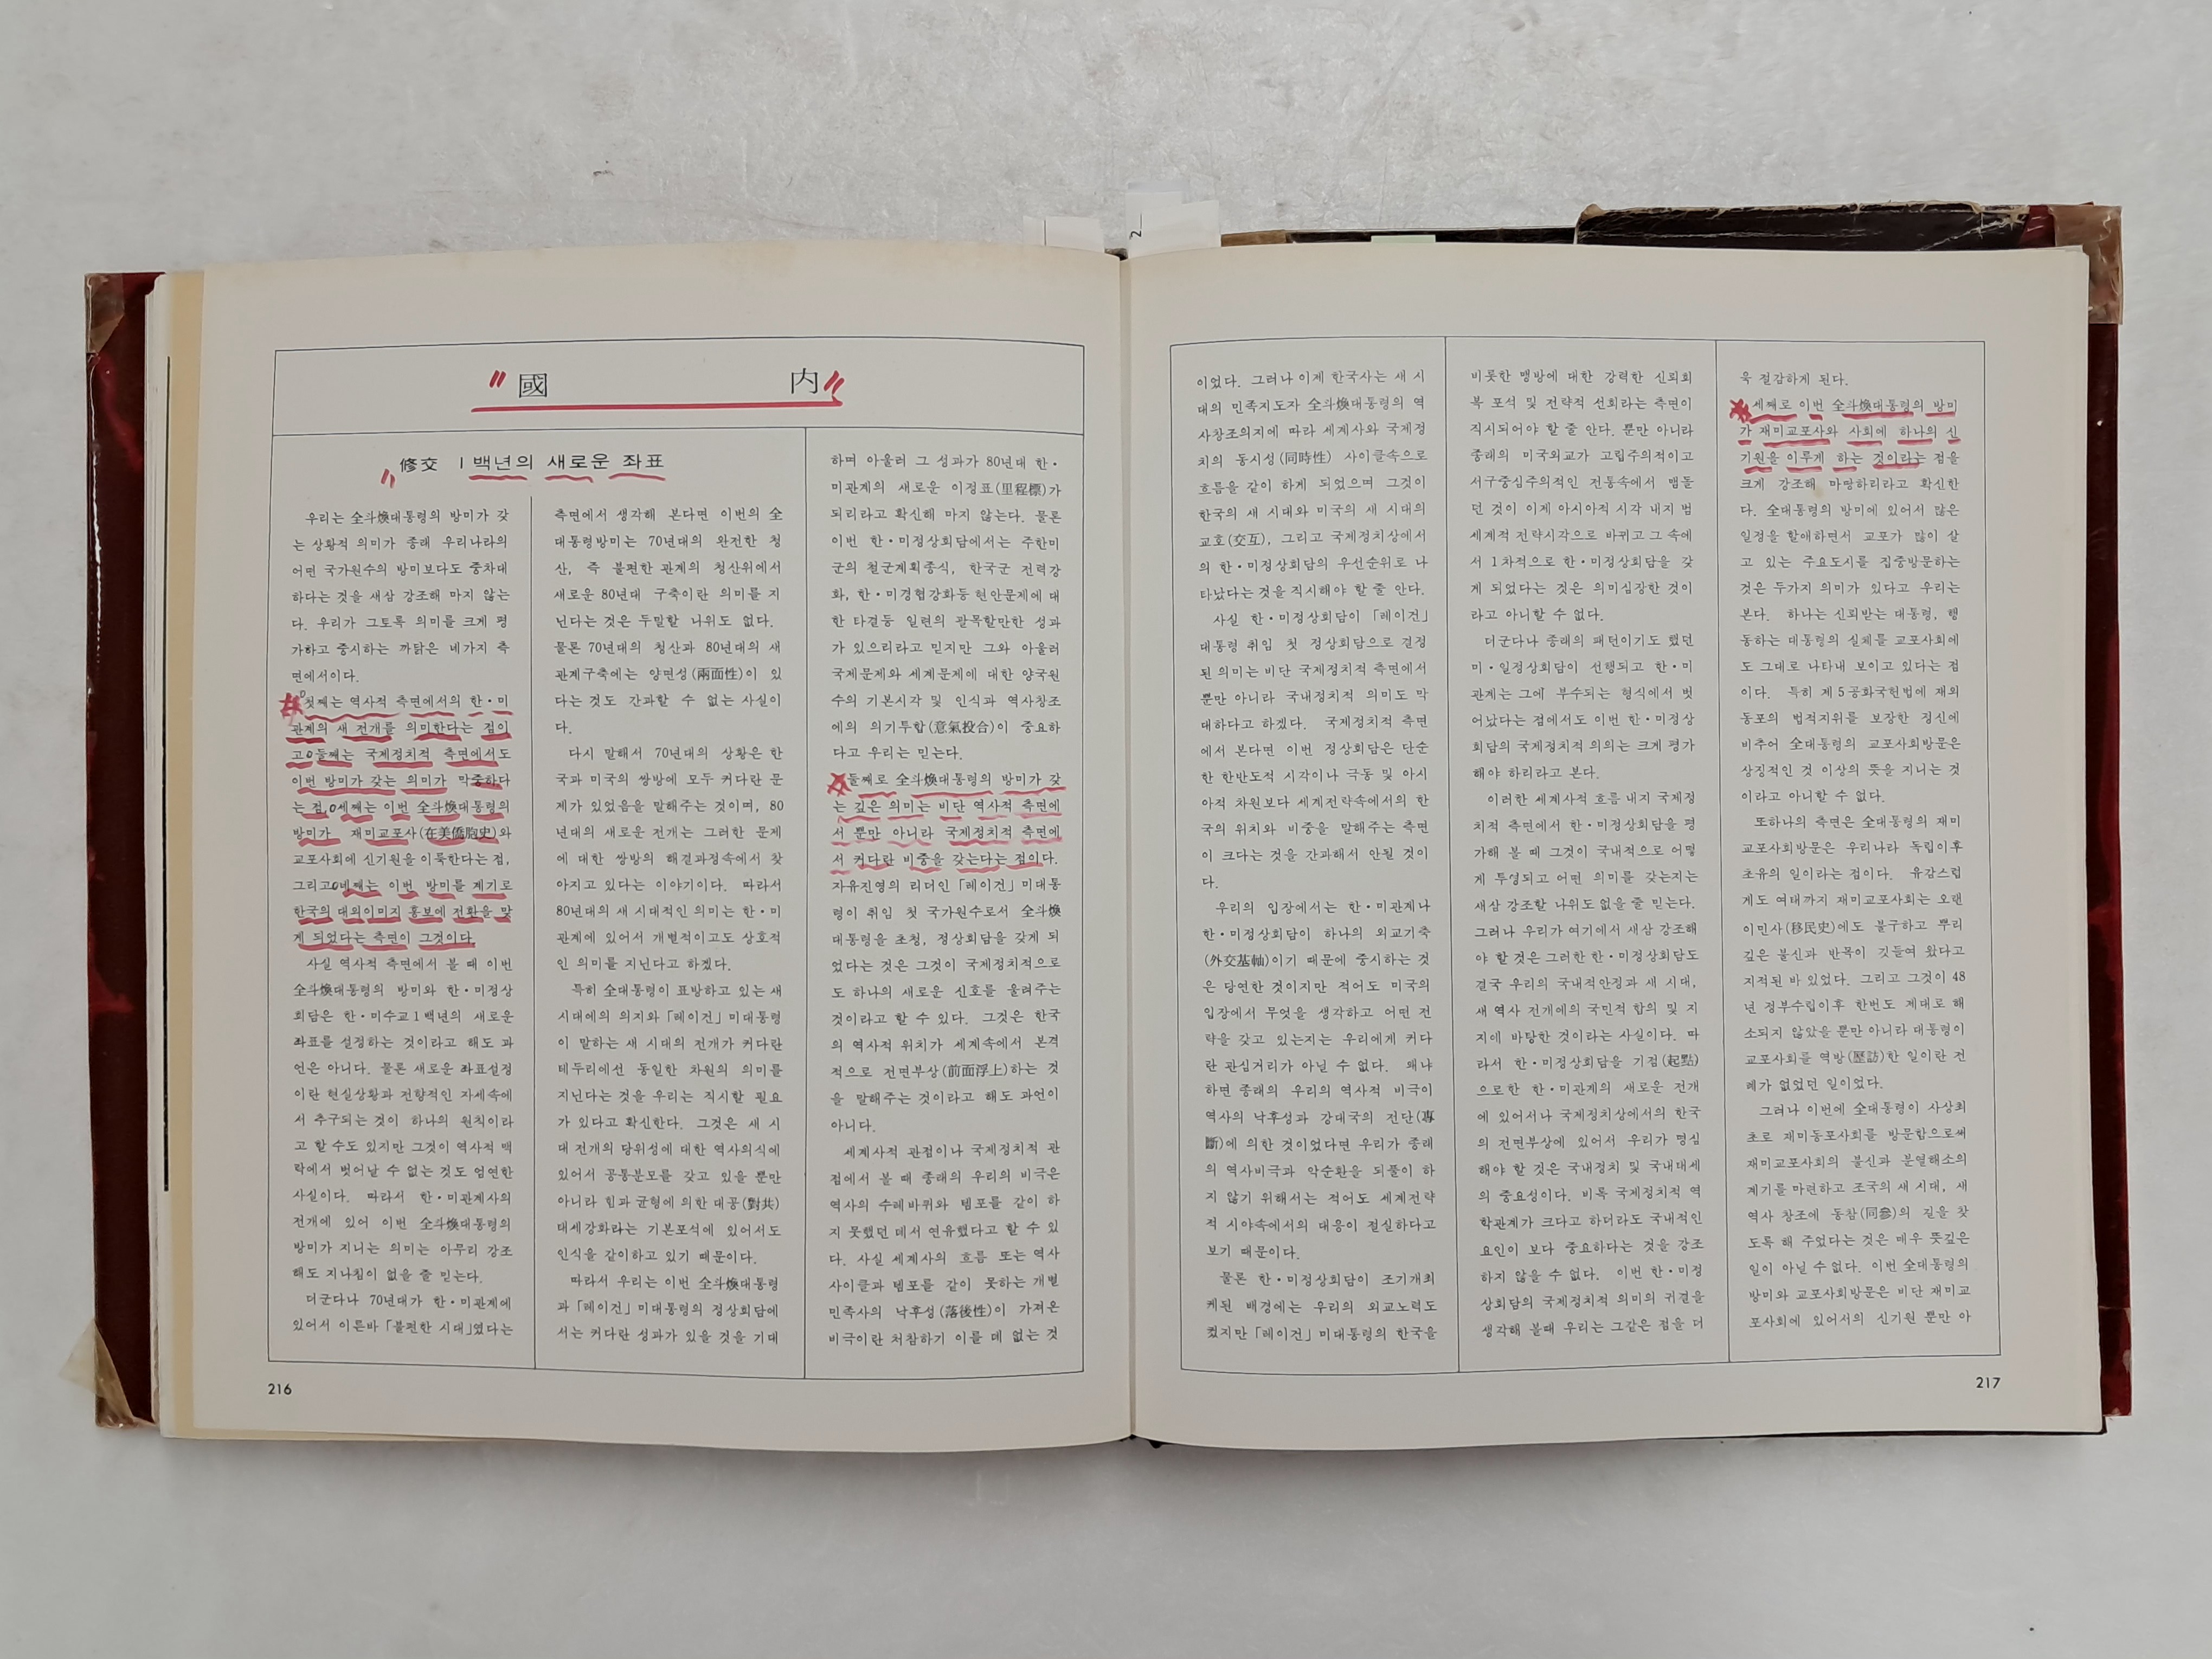 2
國 内
修交 1백년의 새로운 좌표
우리는 全斗煥대통령의 방미가 갖
는 상황적 의미가 종래 우리나라의
어떤 국가원수의 방미보다도 중차대
하다는 것을 새삼 강조해 마지 않는
다. 우리가 그토록 의미를 크게 평
가하고 중시하는 까닭은 네가지 측
면에서이다.
첫째는 역사적 측면에서의 한・미
관계의 새 전개를 의미한다는 점이
고 둘째는 국제정치적 측면에서도
이번 방미가 갖는 의미가 막중하다
는 점, 세째는 이번 全斗煥대통령의
방미가 재미교포사(在美僑胞史)와
교포사회에 신기원을 이룩한다는 점,
그리고 네째는 이번 방미를 계기로
한국의 대외이미지 홍보에 전환을 맞
게 되었다는 측면이 그것이다.
사실 역사적 측면에서 볼 때 이번
全斗煥대통령의 방미와 한・미정상
회담은 한・미수교 1백년의 새로운
좌표를 설정하는 것이라고 해도 과
언은 아니다. 물론 새로운 좌표설정
이란 현실상황과 전향적인 자세속에
서 추구되는 것이 하나의 원칙이라
고 할 수도 있지만 그것이 역사적 맥
락에서 벗어날 수 없는 것도 엄연한
사실이다. 따라서 한・미관계사의
전개에 있어 이번 全斗煥대통령의
방미가 지니는 의미는 아무리 강조
해도 지나침이 없을 줄 믿는다.
더군다나 70년대가 한・미관계에
있어서 이른바 「불편한 시대」였다는
측면에서 생각해 본다면 이번의 全
대통령방미는 70년대의 완전한 청
산, 즉 불편한 관계의 청산위에서
새로운 80년대 구축이란 의미를 지
닌다는 것은 두말할 나위도 없다.
물론 70년대의 청산과 80년대의 새
관계구축에는 양면성(兩面性)이 있
다는 것도 간과할 수 없는 사실이
다.
다시 말해서 70년대의 상황은 한
국과 미국의 쌍방에 모두 커다란 문
제가 있었음을 말해주는 것이며, 80
년대의 새로운 전개는 그러한 문제
에 대한 쌍방의 해결과정속에서 찾
아지고 있다는 이야기이다. 따라서
80년대의 새 시대적인 의미는 한・미
관계에 있어서 개별적이고도 상호적
인 의미를 지닌다고 하겠다.
특히 全대통령이 표방하고 있는 새
시대에의 의지와 「레이건」 미대통령
이 말하는 새 시대의 전개가 커다란
테두리에선 동일한 차원의 의미를
지닌다는 것을 우리는 직시할 필요
가 있다고 확신한다. 그것은 새 시
대 전개의 당위성에 대한 역사의식에
있어서 공통분모를 갖고 있을 뿐만
아니라 힘과 균형에 의한 대공(對共)
대세강화라는 기본포석에 있어서도
인식을 같이하고 있기 때문이다.
따라서 우리는 이번 全斗煥대통령
과 「레이건」 미대통령의 정상회담에
서는 커다란 성과가 있을 것을 기대
하며 아울러 그 성과가 80년대 한・
미관계의 새로운 이정표(里程標)가
되리라고 확신해 마지 않는다. 물론
이번 한・미정상회담에서는 주한미
군의 철군계획종식, 한국군 전력강
화, 한・미경협강화등 현안문제에 대
한 타결등 일련의 괄목할만한 성과
가 있으리라고 믿지만 그와 아울러
국제문제와 세계문제에 대한 양국원
수의 기본시각 및 인식과 역사창조
에의 의기투합(意氣投合)이 중요하
다고 우리는 믿는다.
둘째로 全斗煥대통령의 방미가 갖
는 깊은 의미는 비단 역사적 측면에
서 뿐만 아니라 국제정치적 측면에
서 커다란 비중을 갖는다는 점이다.
자유진영의 리더인 「레이건」 미대통
령이 취임 첫 국가원수로서 全斗煥
대통령을 초청, 정상회담을 갖게 되
었다는 것은 그것이 국제정치적으로
도 하나의 새로운 신호를 울려주는
것이라고 할 수 있다. 그것은 한국
의 역사적 위치가 세계속에서 본격
적으로 전면부상(前面浮上)하는 것
을 말해주는 것이라고 해도 과언이
아니다.
세계사적 관점이나 국제정치적 관
점에서 볼 때 종래의 우리의 비극은
역사의 수레바퀴와 템포를 같이 하
지 못했던 데서 연유했다고 할 수 있
다. 사실 세계사의 흐름 또는 역사
사이클과 템포를 같이 못하는 개별
민족사의 낙후성(落後性)이 가져온
비극이란 처참하기 이를 데 없는 것
216
이었다. 그러나 이제 한국사는 새 시
대의 민족지도자 全斗煥대통령의 역
사창조의지에 따라 세계사와 국제정
치의 동시성(同時性) 사이클속으로
흐름을 같이 하게 되었으며 그것이
한국의 새 시대와 미국의 새 시대의
교호(交互), 그리고 국제정치상에서
의 한・미정상회담의 우선순위로 나
타났다는 것을 직시해야 할 줄 안다.
사실 한・미정상회담이 「레이건」
대통령 취임 첫 정상회담으로 결정
된 의미는 비단 국제정치적 측면에서
뿐만 아니라 국내정치적 의미도 막
대하다고 하겠다. 국제정치적 측면
에서 본다면 이번 정상회담은 단순
한 한반도적 시각이나 극동 및 아시
아적 차원보다 세계전략속에서의 한
국의 위치와 비중을 말해주는 측면
이 크다는 것을 간과해서 안될 것이
다.
우리의 입장에서는 한・미관계나
한・미정상회담이 하나의 외교기축
(外交基軸)이기 때문에 중시하는 것
은 당연한 것이지만 적어도 미국의
입장에서 무엇을 생각하고 어떤 전
략을 갖고 있는지는 우리에게 커다
란 관심거리가 아닐 수 없다. 왜냐
하면 종래의 우리의 역사적 비극이
역사의 낙후성과 강대국의 전단(專
斷)에 의한 것이었다면 우리가 종래
의 역사비극과 악순환을 되풀이 하
지 않기 위해서는 적어도 세계전략
적 시야속에서의 대응이 절실하다고
보기 때문이다.
물론 한・미정상회담이 조기개최
케된 배경에는 우리의 외교노력도
컸지만 「레이건」 미대통령의 한국을
비롯한 맹방에 대한 강력한 신뢰회
복 포석 및 전략적 선회라는 측면이
직시되어야 할 줄 안다. 뿐만 아니라
종래의 미국외교가 고립주의적이고
서구중심주의적인 전통속에서 맴돌
던 것이 이제 아시아적 시각 내지 범
세계적 전략시각으로 바뀌고 그 속에
서 1차적으로 한・미정상회담을 갖
게 되었다는 것은 의미심장한 것이
라고 아니할 수 없다.
더군다나 종래의 패턴이기도 했던
미・일정상회담이 선행되고 한・미
관계는 그에 부수되는 형식에서 벗
어났다는 점에서도 이번 한・미정상
회담의 국제정치적 의의는 크게 평가
해야 하리라고 본다.
이러한 세계사적 흐름 내지 국제정
치적 측면에서 한・미정상회담을 평
가해 볼 때 그것이 국내적으로 어떻
게 투영되고 어떤 의미를 갖는지는
새삼 강조할 나위도 없을 줄 믿는다.
그러나 우리가 여기에서 새삼 강조해
야 할 것은 그러한 한・미정상회담도
결국 우리의 국내적안정과 새 시대,
새 역사 전개에의 국민적 합의 및 지
지에 바탕한 것이라는 사실이다. 따
라서 한・미정상회담을 기점(起點)
으로한 한・미관계의 새로운 전개
에 있어서나 국제정치상에서의 한국
의 전면부상에 있어서 우리가 명심
해야 할 것은 국내정치 및 국내대세
의 중요성이다. 비록 국제정치적 역
학관계가 크다고 하더라도 국내적인
요인이 보다 중요하다는 것을 강조
하지 않을 수 없다. 이번 한・미정
상회담의 국제정치적 의미의 귀결을
생각해 볼때 우리는 그같은 점을 더
욱 절감하게 된다.
세째로 이번 全斗煥대통령의 방미
가 재미교포사와 사회에 하나의 신
기원을 이루게 하는 것이라는 점을
크게 강조해 마땅하리라고 확신한
다. 全대통령의 방미에 있어서 많은
일정을 할애하면서 교포가 많이 살
고 있는 주요도시를 집중방문하는
것은 두가지 의미가 있다고 우리는
본다. 하나는 신뢰받는 대통령, 행
동하는 대통령의 실체를 교포사회에
도 그대로 나타내 보이고 있다는 점
이다. 특히 제5공화국헌법에 재외
동포의 법적지위를 보장한 정신에
비추어 全대통령의 교포사회방문은
상징적인 것 이상의 뜻을 지니는 것
이라고 아니할 수 없다.
또하나의 측면은 全대통령의 재미
교포사회방문은 우리나라 독립이후
초유의 일이라는 점이다. 유감스럽
게도 여태까지 재미교포사회는 오랜
이민사(移民史)에도 불구하고 뿌리
깊은 불신과 반목이 깃들여 왔다고
지적된 바 있었다. 그리고 그것이 48
년 정부수립이후 한번도 제대로 해
소되지 않았을 뿐만 아니라 대통령이
교포사회를 역방(歷訪)한 일이란 전
례가 없었던 일이었다.
그러나 이번에 全대통령이 사상최
초로 재미동포사회를 방문함으로써
재미교포사회의 불신과 분열해소의
계기를 마련하고 조국의 새 시대, 새
역사 창조에 동참(同參)의 길을 찾
도록 해 주었다는 것은 매우 뜻깊은
일이 아닐 수 없다. 이번 全대통령의
방미와 교포사회방문은 비단 재미교
포사회에 있어서의 신기원 뿐만 아
217